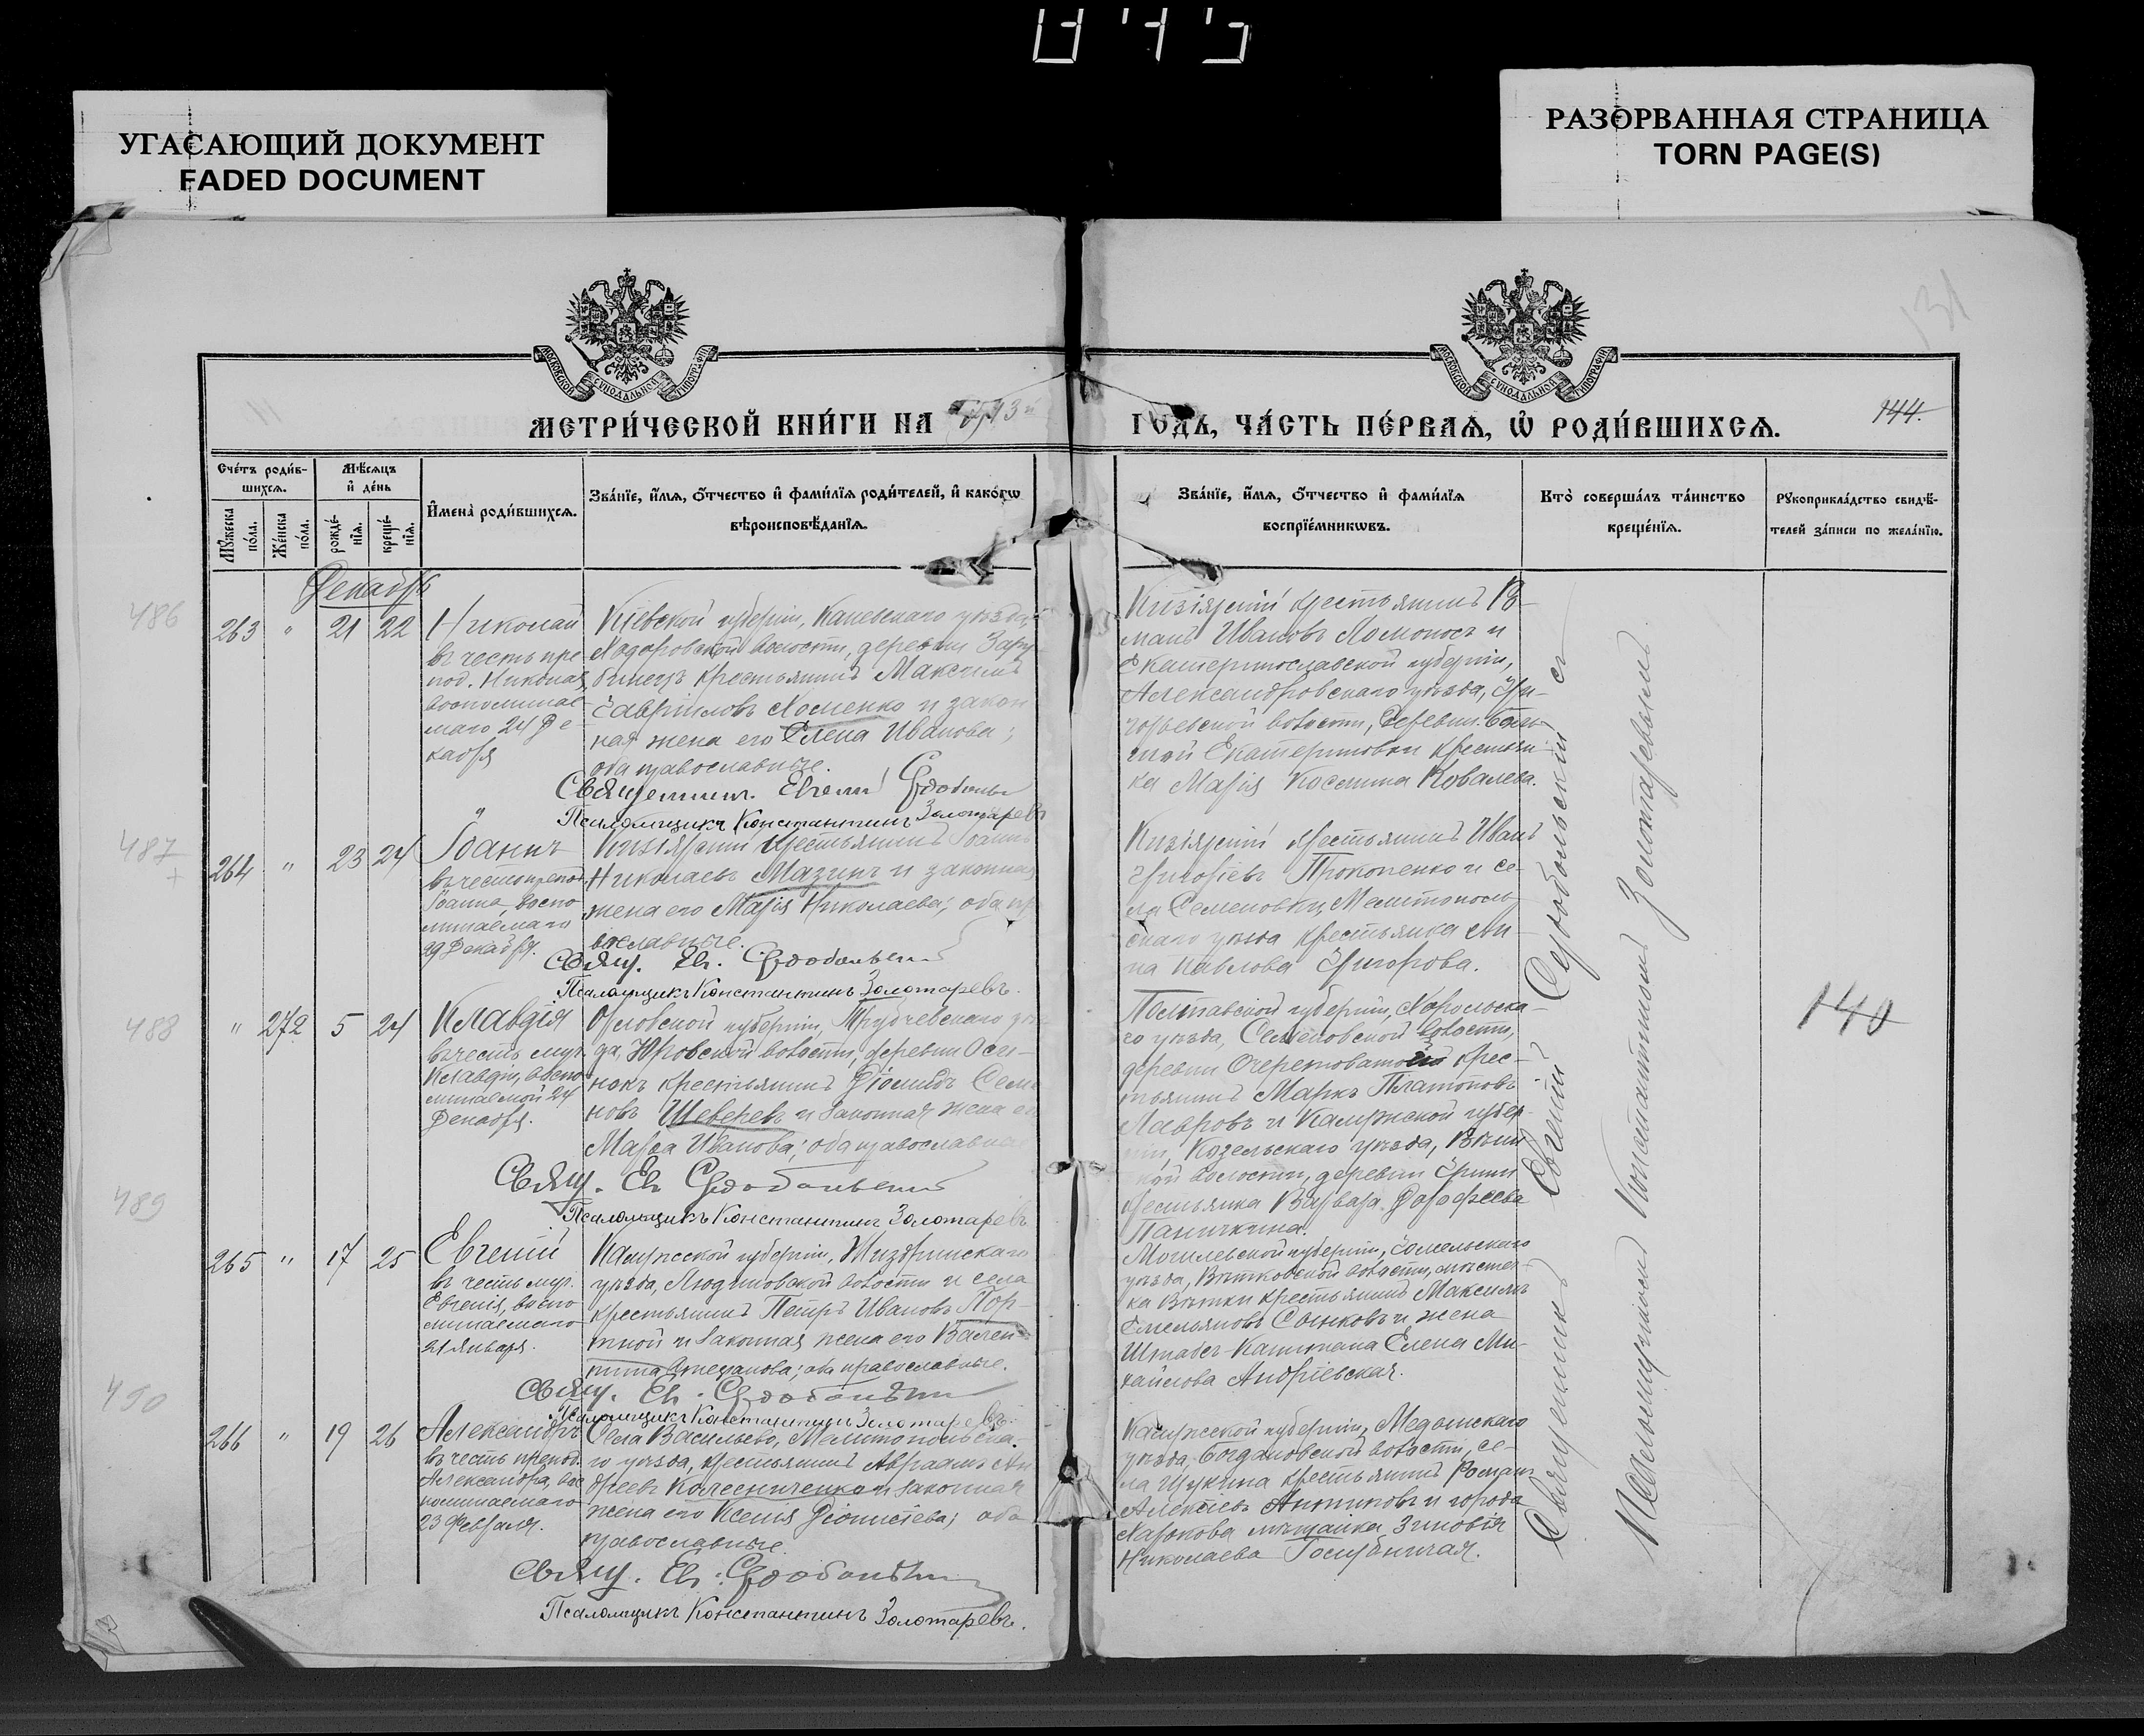 УГАСАЮЩИЙ ДОКУМЕНТ
FADED DOCUMENT
РАЗОРВАННАЯ СТРАНИЦА
TORN PAGE(S)
МЕТРИ́ЧЕСКОЙ КНИ́ГИ НА
ГОДЪ, ЧА́СТЬ ПЕ́РВАѦ, Ѡ҆ РОДИ́ВШИХСѦ.
144.
Сче́тъ роди́в-
шихсѧ.
Мѣ́сѧцъ
и҆ де́нь
Мꙋ́жеска
по́ла.
Же́нска
по́ла.
рожде́-
нїѧ.
креще́-
нїѧ.
И҆мена̀ роди́вшихсѧ.
Зва́нїе, и҆́мѧ, ѻ҆́тчество и҆ фами́лїѧ роди́телей, и҆ како́гѡ
вѣроисповѣ́данїѧ.
Зва́нїе, и҆́мѧ, ѻ҆́тчество и҆ фами́лїѧ
воспрїе́мникѡвъ.
Кто̀ соверша́лъ та́инство
креще́нїѧ.
Рꙋкоприкла́дство свидѣ́-
телей за́писи по жела́нїю.
Декабрь
486
263 " 21 22
Николай
въ честь пре
под. Николая,
воспоминае-
маго 24 Де-
кабря
Кіевской губерніи, Каневскаго уѣзда,
Ходоровской волости, деревни Зару
бинецъ крестьянинъ Максимъ
Гавріиловъ Хоменко и закон
ная жена его Елена Иванова;
оба православные.
Священник. Евгеній Сердобольск
Псаломщикъ Константинъ Золотаревъ
Кизіярскій крестьянинъ Ро-
манъ Ивановъ Ломоносъ и
Екатеринославской губерніи,
Александровскаго уѣзда, Гри-
горьевской волости, деревни Боль-
шой Екатериновки крестьян-
ка Марія Косьмина Ковалева.
487
264 " 23 24
Іоаннъ
въ честь препод.
Іоанна, воспо
минаемаго
29 Декабря.
Кизіярскій крестьянинъ Іоаннъ
Николаевъ Мазинъ и законная
жена его Марія Николаева; оба пр
вославные.
Свящ. Ев. Сердобольскій
Псаломщикъ Константинъ Золотаревъ.
Кизіярскій крестьянинъ Иванъ
Григорьевъ Прокопенко и се-
ла Семеновки, Мелитополь-
скаго уѣзда крестьянка Ан-
на Павлова Григорова.
488
" 272 5 24
Клавдія
въ честь муч.
Клавдіи, воспо
минаемой 24
Декабря.
Орловской губерніи, Трубчевскаго уѣ
да, Юровской волости, деревни Оси-
нокъ крестьянинъ Діомидъ Семе
новъ Шеверевъ и законная жена ег
Марѳа Иванова; оба православные
Свящ. Ев Сердобольскій
Псаломщикъ Константинъ Золотаревъ
Полтавской губерніи, Хорольска-
го уѣзда, Семеновской волости,
деревни Очеретоватой крес-
тьянинъ Маркъ Платоновъ
Лавровъ и Калужской губер-
ніи, Козельскаго уѣзда,
волости, деревни
крестьянка Варвара Дороѳеева
Паничкина.
489
265 " 17 25
Евгеній
въ честь муч.
Евгенія, воспо
минаемаго
21 Января.
Калужской губерніи, Жиздринскаго
уѣзда, Людиновской волости и села
крестьянинъ Петръ Ивановъ Пор-
тной и законная жена его Вален-
тина Степанова; оба православные.
Свящ. Ев. Сердобольскій
Псаломщикъ Константинъ Золотаревъ.
Могилевской губерніи, Гомельскаго
уѣзда, Вѣтковской волости, мѣстеч-
ка Вѣтки крестьянинъ Максимъ
Емельяновъ и жена
Штабсъ-Капитана Елена Ми-
хайлова Андріевская.
490
266 " 19 26
Александръ
въ честь препод.
Александра, вос
поминаемаго
23 Февраля.
Села Васильево, Мелитопольска-
го уѣзда, крестьянинъ Авраамъ Ан
дреевъ Колесниченко и законная
жена его Ксенія Діонисіева; оба
православные.
Свящ. Ев. Сердобольскій
Псаломщикъ Константинъ Золотаревъ.
Калужской губерніи, Медынскаго
уѣзда, Богдановской волости, се-
ла Щукина крестьянинъ Романъ
Алексѣевъ Антиповъ и города
Харькова мѣщанка Зиновія
Николаева Голубничая.
Священникъ Евгеній Сердобольскій съ
псаломщикомъ Константиномъ Золотаревымъ.
140